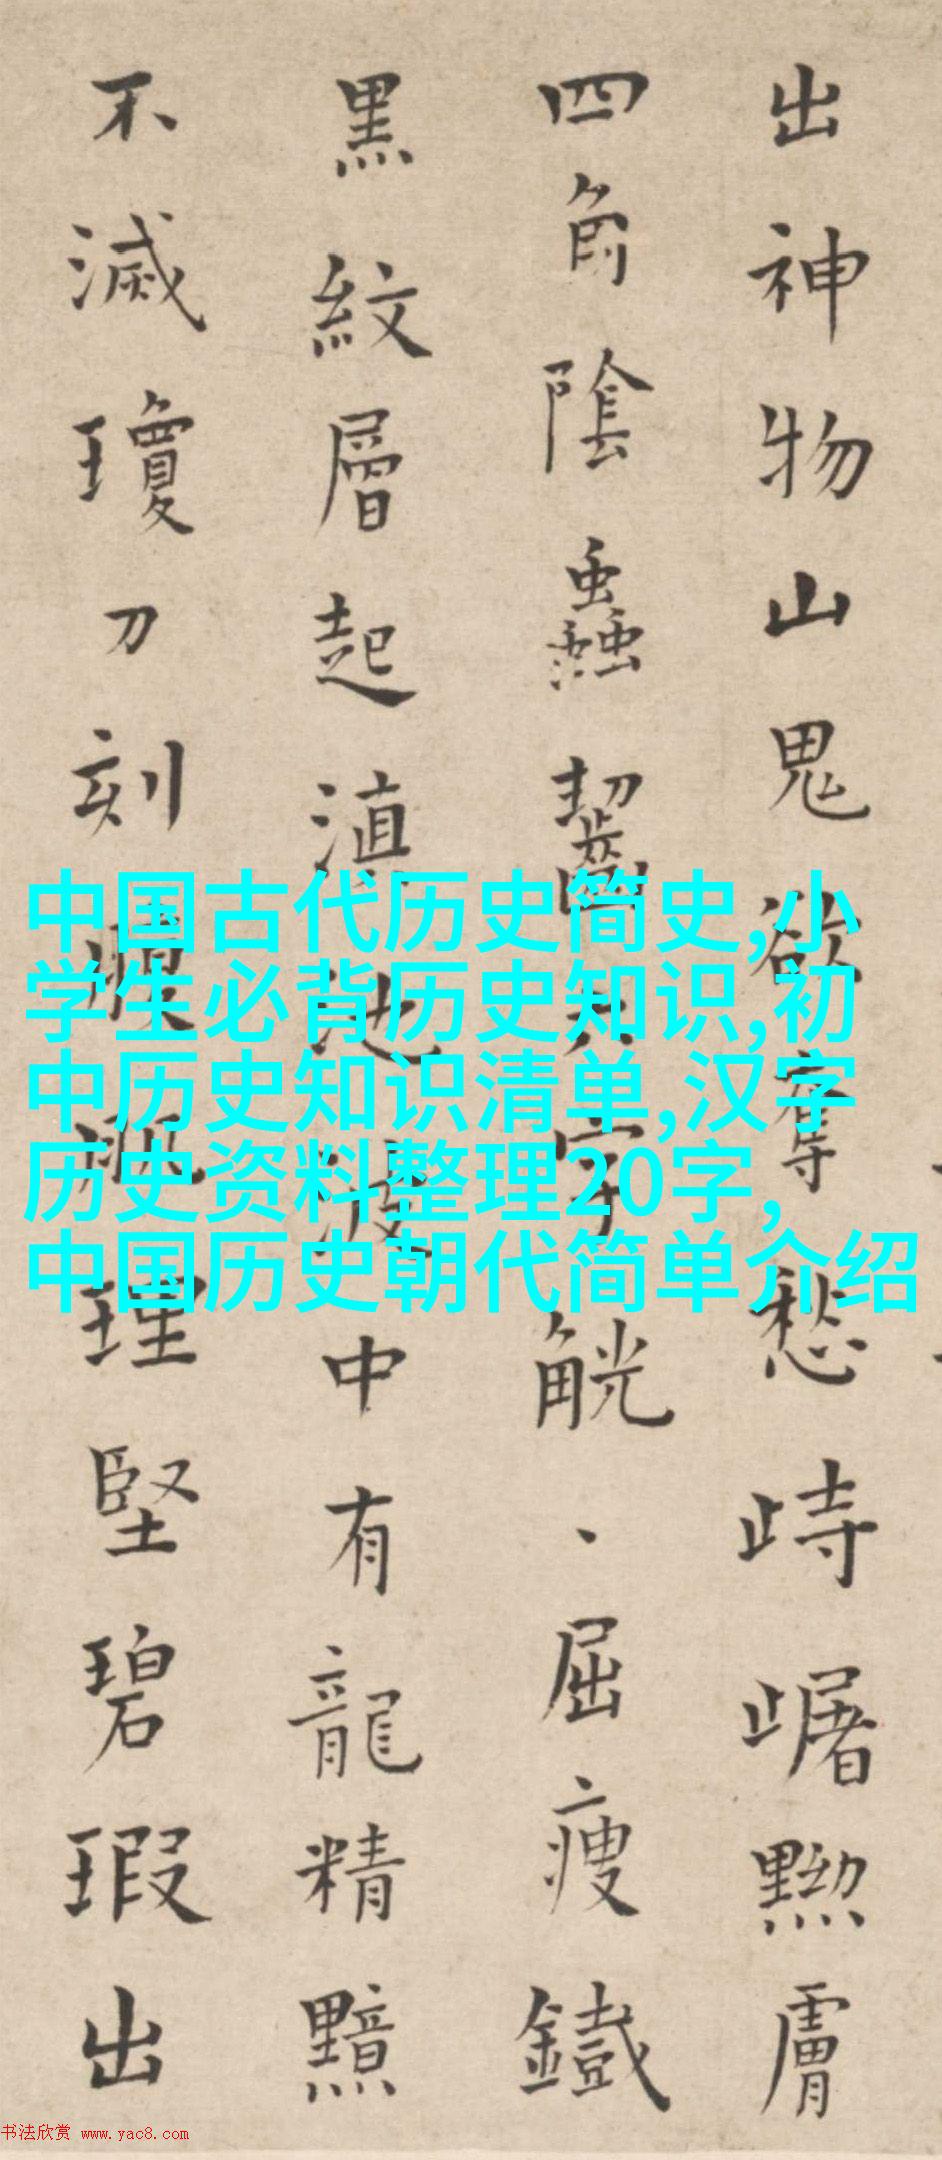 出神物山鬼欲奪愁歭黝膚
四角陰蟲齧字觥、屈瘦鐵
黑紋層起滇池波中有龍精黯
不滅瓊刀刻理堅碧瑕出
中国古代历史简史,小
学生必背历史知识,初
中历史知识清单,汉字
历史资料整理20字,
中国历史朝代简单介绍
书法欣赏 www.yac8.com